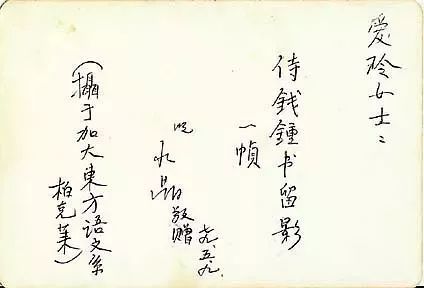 爱玲女士：
侍錢鍾书留影
一幀
晚 水晶敬赠
七九.五.九.
（攝于加大東方语文系
柏克莱）